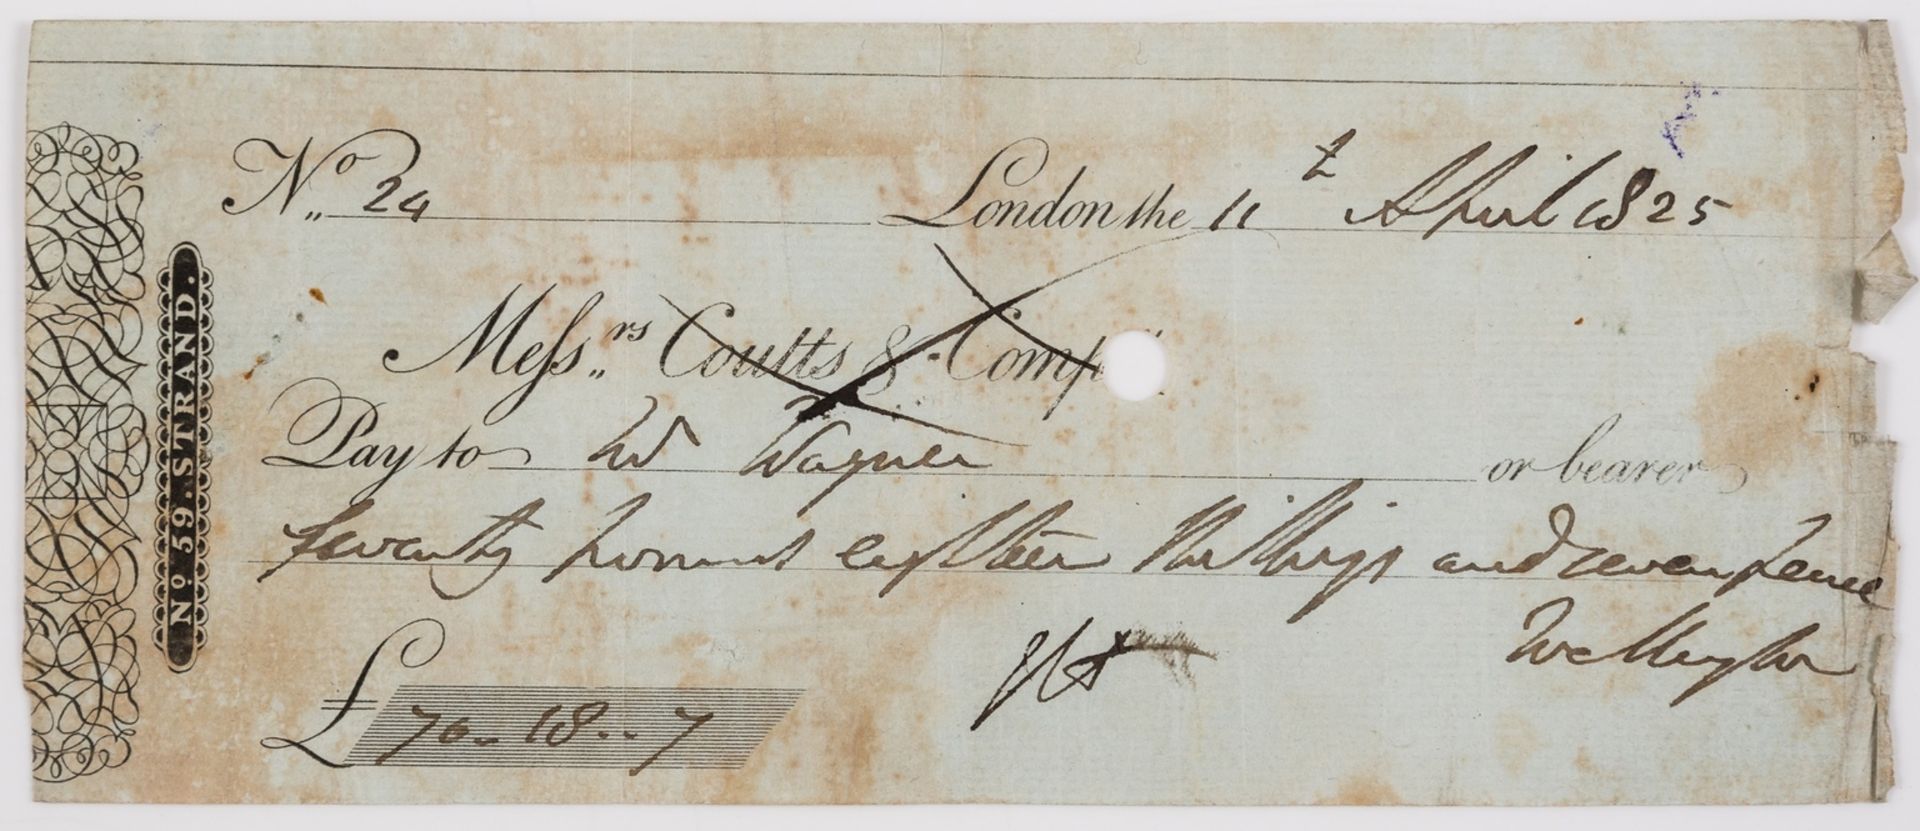 No. 24 London the 11th April 1825
Messrs. Coutts & Comp
Pay to Wagner or bearer
seventy pounds eighteen shillings and seven pence
Wellington
£ 70 - 18 - 7
No. 59. STRAND.